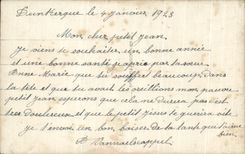 Dunkerque le 4 janvier 1923
Mon cher petit jean
je viens te souhaiter une bonne année
et une bonne santé j'appris par ta sœur
Anne Marie que tu souffres beaucoup dans
la tête et que tu avais les oreillons mon pauvre
petit jean espérons que cela ne dure pas c'est
très douloureux et que le petit jean te guérira vite
je t'envoie un bon baiser de ta tante qui t'aime
bien